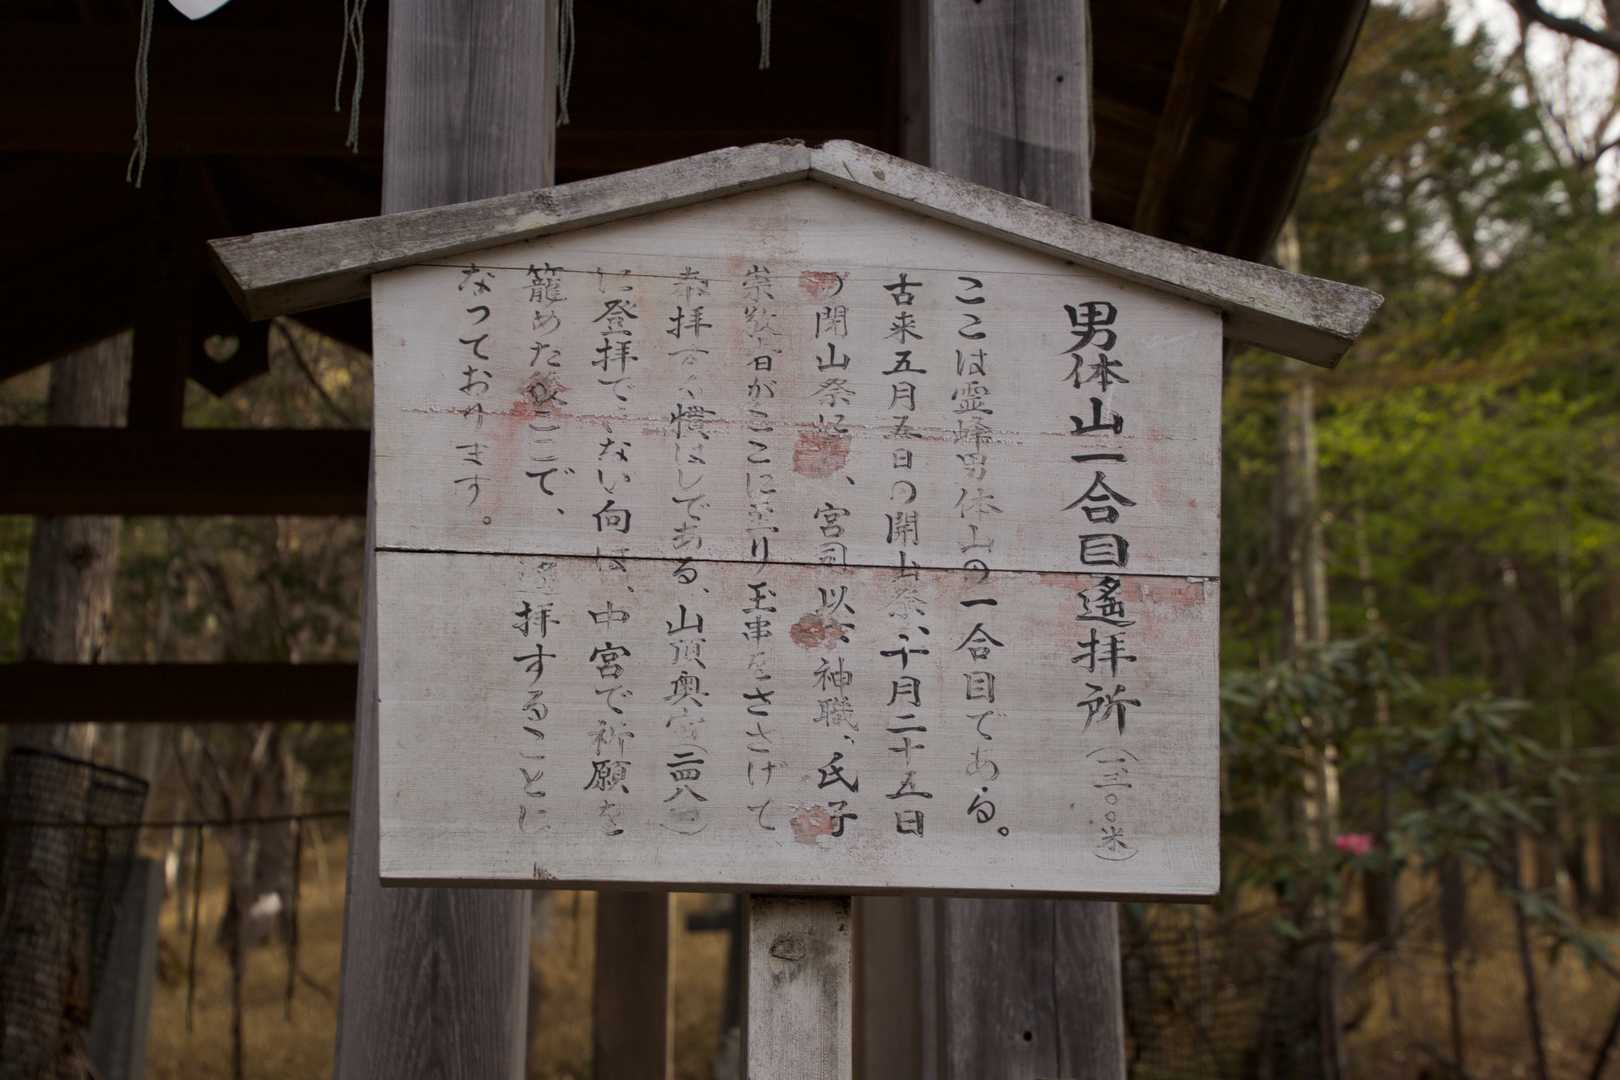 男体山一合目遙拝所(一三〇〇米)
ここは霊峰男体山の一合目である。
古来五月五日の開山祭、十月二十五日
の閉山祭に、宮司以下、神職、氏子
崇敬者がここに至り玉串をささげて
奉拝する慣はしである、山頂奥宮(二四八四)
に登拝できない向は、中宮で祈願を
籠めた後ここで、遙拝することに
なっております。